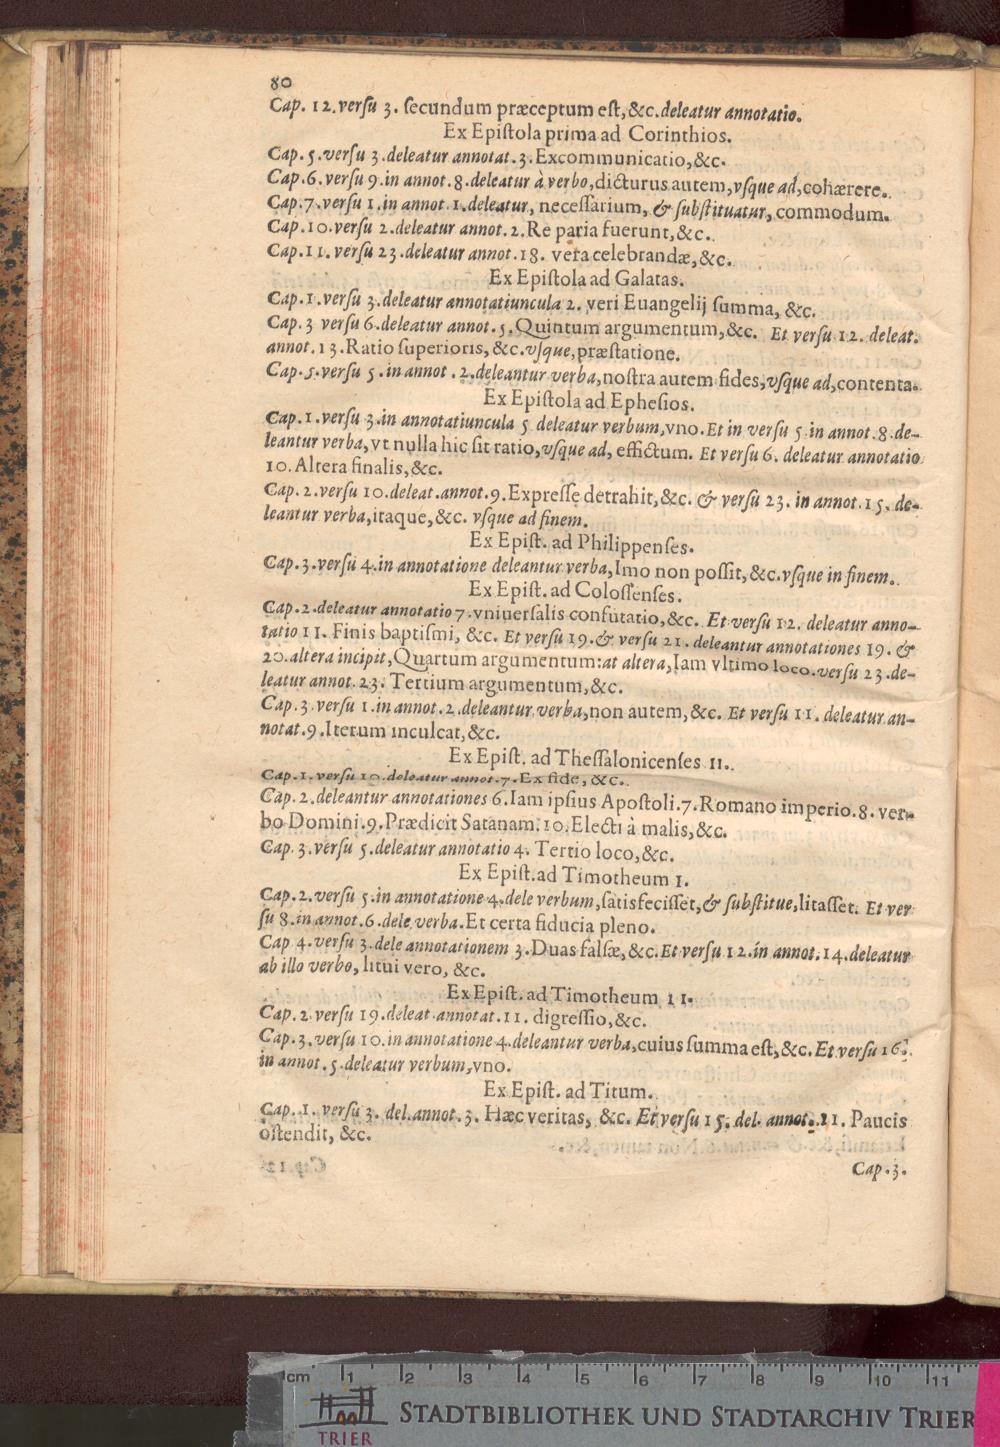 80
Cap. 12.versu 3. secundum præceptum est,&c.deleatur annotatio.
Ex Epistola prima ad Corinthios.
Cap.5.versu 3.deleatur annotat.3.Excommunicatio,&c.
Cap.6.versu 9.in annot.8.deleatur à verbo,dicturus autem,vsque ad,cohærere.
Cap.7.versu 1.in annot.1.deleatur, necessarium, & substituatur, commodum.
Cap.10.versu 2.deleatur annot.2.Re paria fuerunt,&c.
Cap.11.versu 23.deleatur annot.18. vera celebrandæ,&c.
Ex Epistola ad Galatas.
Cap.1.versu 3.deleatur annotatiuncula 2. veri Euangelij summa, &c.
Cap.3 versu 6.deleatur annot.5.Quintum argumentum,&c. Et versu 12. deleat.
annot.13.Ratio superioris, &c.vsque,præstatione.
Cap.5.versu 5.in annot.2.deleantur verba,nostra autem fides,vsque ad,contenta.
Ex Epistola ad Ephesios.
Cap.1.versu 3.in annotatiuncula 5 deleatur verbum,vno.Et in versu 5.in annot.8.de-
leantur verba,vt nulla hic sit ratio,vsque ad, effictum. Et versu 6. deleatur annotatio
10.Altera finalis,&c.
Cap.2.versu 10.deleat.annot.9.Expresse detrahit,&c. & versu 23. in annot.15. de-
leantur verba,itaque,&c. vsque ad finem.
Ex Epist. ad Philippenses.
Cap.3.versu 4.in annotatione deleantur verba,Imo non possit,&c.vsque in finem.
Ex Epist. ad Colossenses.
Cap.2.deleatur annotatio 7.vniuersalis confutatio,&c. Et versu 12. deleatur anno-
tatio 11. Finis baptismi, &c. Et versu 19.& versu 21. deleantur annotationes 19. &
20.altera incipit,Quartum argumentum:at altera,Iam vltimo loco.versu 23.de-
leatur annot.23. Tertium argumentum,&c.
Cap.3.versu 1.in annot.2.deleantur verba,non autem,&c. Et versu 11. deleatur an-
notat.9.Iterum inculcat,&c.
Ex Epist. ad Thessalonicenses II.
Cap.1.versu 10.deleatur annot.7.Ex fide,&c.
Cap.2.deleantur annotationes 6.Iam ipsius Apostoli.7.Romano imperio.8.ver-
bo Domini.9.Prædicit Satanam.10.Electi à malis,&c.
Cap.3.versu 5.deleatur annotatio 4. Tertio loco,&c.
Ex Epist.ad Timotheum 1.
Cap.2.versu 5.in annotatione 4.dele verbum,satisfecisset,& substitue,litasset. Et ver
su 8.in annot.6.dele verba.Et certa fiducia pleno.
Cap 4.versu 3.dele annotationem 3.Duas falsæ,&c.Et versu 12.in annot.14.deleatur
ab illo verbo, litui vero, &c.
Ex Epist. ad Timotheum 11.
Cap.2.versu 19.deleat annotat.11. digressio,&c.
Cap.3.versu 10.in annotatione 4.deleantur verba,cuius summa est,&c.Et versu 16.
in annot.5.deleatur verbum,vno.
Ex Epist. ad Titum.
Cap.1. versu 3. del.annot.3. Hæc veritas, &c. Et versu 15. del. annot. 11. Paucis
ostendit, &c.
Cap.3.
cm 1 2 3 4 5 6 7 8 9 10 11
TRIER
STADTBIBLIOTHEK UND STADTARCHIV TRIER